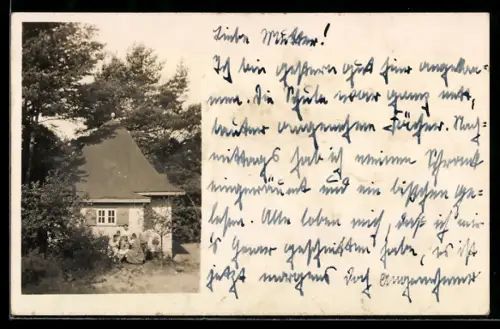 Liebe Mutter!
Ich bin gestern gut hier angekom-
men. Die Schule war ganz nett,
lauter angenehme Fächer. Nach-
mittags hab ich meinen Schrank
eingeräumt und ein bißchen ge-
lesen. Alle loben mich daß ich mir
Haar geschnitten habe, es ist
jetzt morgens doch angenehmer